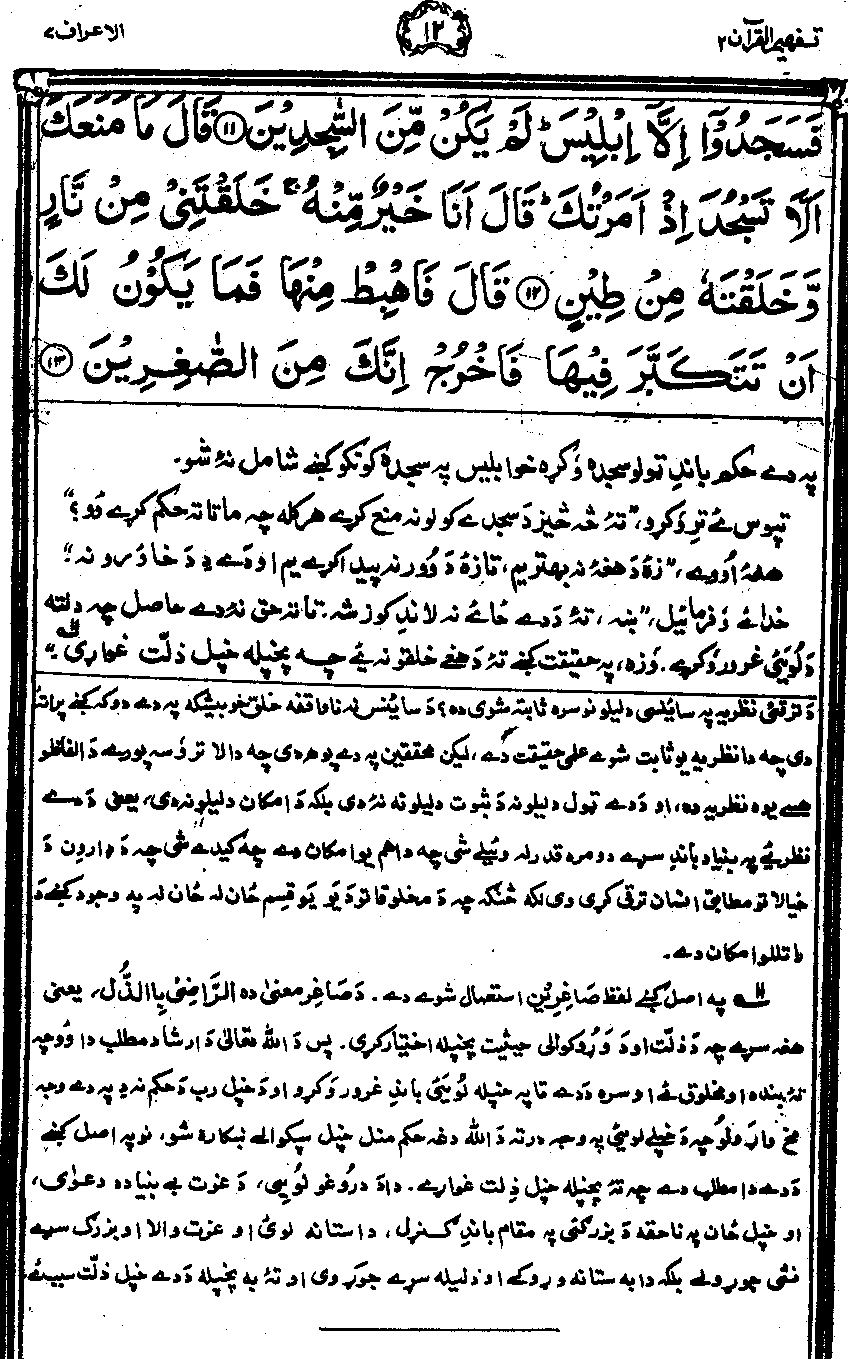 تفهیم القرآن ۲
۱۲
الاعراف ۷
فَسَجَدُوْۤا اِلَّاۤ اِبْلِیْسَ ؕ لَمْ یَکُنْ مِّنَ السّٰجِدِیْنَ ﴿۱۱﴾ قَالَ مَا مَنَعَكَ
اَلَّا تَسْجُدَ اِذْ اَمَرْتُكَ ؕ قَالَ اَنَا خَیْرٌ مِّنْهُ ۚ خَلَقْتَنِیْ مِنْ نَّارٍ
وَّخَلَقْتَهٗ مِنْ طِیْنٍ ﴿۱۲﴾ قَالَ فَاهْبِطْ مِنْهَا فَمَا یَکُوْنُ لَكَ
اَنْ تَتَکَبَّرَ فِیْهَا فَاخْرُجْ اِنَّكَ مِنَ الصّٰغِرِیْنَ ﴿۱۳﴾
په دے حکم باندِ ټولو سجده وَکړه خو ابلیس په سجده کوُنکو کښے شامل نۀ شو.
تپوس ئے ترِ وَکړو، "تۀ څۀ څیز دَ سجدے کولو نه منع کړے هر کله چه ما تا ته حکم کړے وُو؟"
هغۀ اُووے، "زۀ دَ هغۀ نه بهتر یم، تا زۀ دَ وور نه پیدا کړے یم او دے دِ دَ خاورو نه."
خدائے وَفرمائیل، "ښه، تۀ دَدے ځائے نه لاندِ کوز شه. تا ته حق نۀ دے حاصل چه دلته
دَ لُویَئ غرور وَکړے. وَزه، په حقیقت کښے تۀ دَ هغے خلقو نه ئے چه پخپله خپل ذلّت غواړی."
دَ ترقئ نظریه په سائنسی دلیلونو سره ثابته شوی ده؟ دَ سائنس نه ناواقفه خلق خو بیشکه په دے دوکه کښے پراته
دی چه دا نظریه یو ثابت شوے علمی حقیقت دے، لیکن محققین په دے پوهیږی چه دا لا تر وُسه پورے دَ الفاظو
هسے یوه نظریه ده، او دَدے ټول دلیلونه دَ ثبوت دلیلونه نۀ دی بلکه دَ امکان دلیلونه دی، یعنی دَدے
نظریئے په بنیاد باندِ سړے دومره قدرله وئیلے شی چه دا هم یو امکان دے چه کیدے شی چه دَ ډارون دَ
خیالاتو مطابق انسان ترقی کړی وی لکه څنګه چه دَ مخلوقاتو دَ یو یو قسم ځان له ځان له په وجود کښے دَ
راتللو امکان دے.
۱۱ے په اصل کښے لفظ صَاغِرِیْنَ استعمال شوے دے. دَ صَاغِر معنیٰ ده اَلرَّاضِیْ بِالذُّل، یعنی
هغه سړے چه دَ ذلّت او دَ وَړوکوالی حیثیت پخپله اختیار کړی. پس دَ الله تعالیٰ دَ ارشاد مطلب دا وُو چه
تۀ بنده او مخلوق ئے او سره دَدے تا په خپله لُویَئ باندِ غرور وَکړو او دَ خپل رب دَ حکم نه دِ په دے وجه
مخ واړولو چه دَ خپلے لویَئ په وجه درته دَ الله دغه حکم منل خپل سپکوالے ښکاره شو، نو په اصل کښے
دَدے دا مطلب دے چه تۀ پخپله خپل ذِلت غواړے. دا دَ دروُغو لُویَی، دَ عزت بے بنیاده دعوٰی،
او خپل ځان په ناحقه دَ بزرګئ په مقام باندِ ګنړل، دا ستا نه لوئ او عزت والا او بزرګ سړے
نشی جوړولے بلکه دا به ستا نه وړوکے او ذلیله سړے جوړوی او تۀ به پخپله دَدے خپل ذلّت سبب ئے.